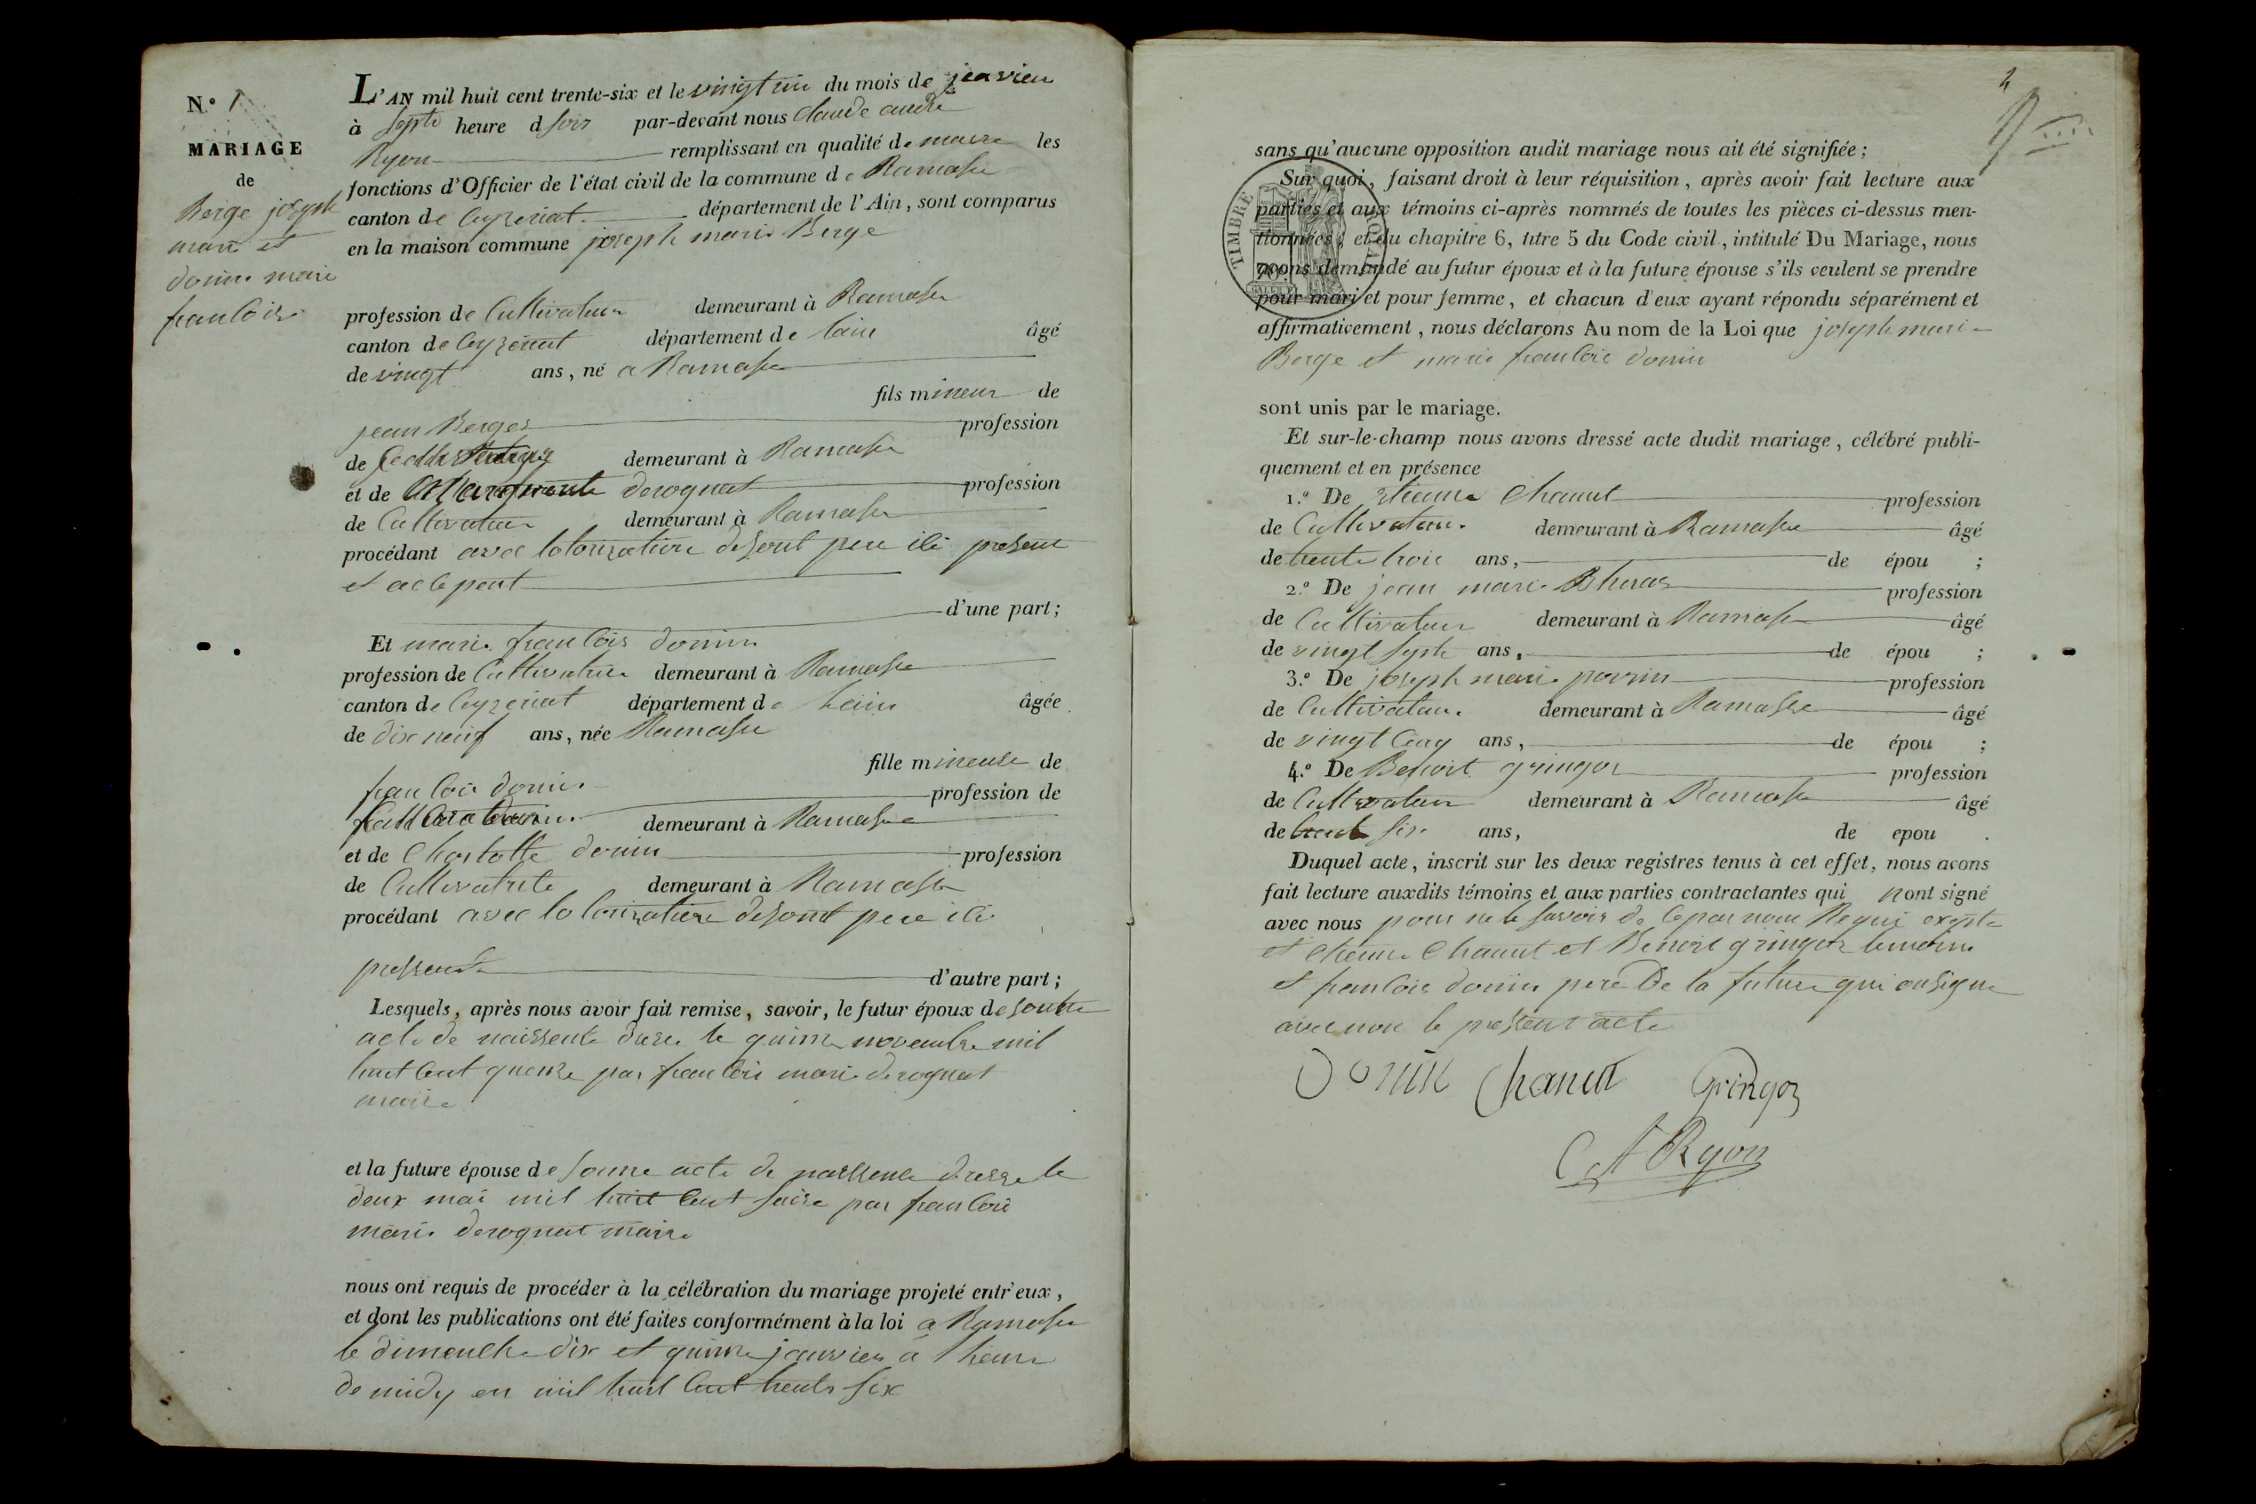 N.º 1
MARIAGE
de
Berge joseph
marie et
donin marie
francoise
L'AN mil huit cent trente-six et le vingt un du mois de janvier
à septe heure d soir par-devant nous Claude andre
Ryon remplissant en qualité de maire les
fonctions d'Officier de l'état civil de la commune de Ramasse
canton de Ceyzeriat département de l'Ain, sont comparus
en la maison commune joseph marie Berge
profession de Cultivateur demeurant à Ramasse
canton de Ceyzeriat département de lain âgé
de vingt ans, né a Ramasse
fils mineur de
jean Berger profession
de demeurant à Ramasse
et de Marguerite derognat profession
de Cultivateur demeurant à Ramasse
procédant avec lotorization desont pere ili present
et acseptent
d'une part;
Et marie francois donin
profession de Cultivatrice demeurant à Ramasse
canton de Ceyzeriat département de lain âgée
de dix neuf ans, née Ramasse
fille mineuse de
francois donin profession de
demeurant à Ramasse
et de Charlotte donin profession
de Cultivatrice demeurant à Ramasse
procédant avec lotorization desont pere ili
pressent d'autre part;
Lesquels, après nous avoir fait remise, savoir, le futur époux de soutre
acte de naissente dresse le quinze novembre mil
huit cent quenze par francois marie derognat
maire
et la future épouse de sonne acte de naissence dresse le
deux mai mil huit cent saise par francois
marie derognat maire
nous ont requis de procéder à la célébration du mariage projeté entr'eux,
et dont les publications ont été faites conformément à la loi a Ramasse
le dimenche dix et quinze janvier a l heure
de midy en mil huit cent trente six
sans qu'aucune opposition audit mariage nous ait été signifiée;
Sur quoi, faisant droit à leur réquisition, après avoir fait lecture aux
parties et aux témoins ci-après nommés de toutes les pièces ci-dessus men-
tionnées, et du chapitre 6, titre 5 du Code civil, intitulé Du Mariage, nous
avons demandé au futur époux et à la future épouse s'ils veulent se prendre
pour mari et pour femme, et chacun d'eux ayant répondu séparément et
affirmativement, nous déclarons Au nom de la Loi que joseph marie
Berge et marie francoise donin
TIMBRE ROYAL
sont unis par le mariage.
Et sur-le-champ nous avons dressé acte dudit mariage, célébré publi-
quement et en présence
1.º De Etienne Chanut profession
de Cultivateur demeurant à Ramasse âgé
de trente trois ans, de épou ;
2.º De jean marie profession
de Cultivateur demeurant à Ramasse âgé
de vingt septe ans, de épou ;
3.º De joseph marie perrin profession
de Cultivateur demeurant à Ramasse âgé
de vingt cinq ans, de épou ;
4.º De Benoit gringoz profession
de Cultivateur demeurant à Ramasse âgé
de trente six ans, de epou .
Duquel acte, inscrit sur les deux registres tenus à cet effet, nous avons
fait lecture auxdits témoins et aux parties contractantes qui nont signé
avec nous pour ne le savoir de separ nous Requi exepte
et etienne Chanut et Benoit gringoz temoin
et francois donin pere De la future qui onsigne
avec nous le pressent acte
Donin Chanut Gringoz
CA Ryon